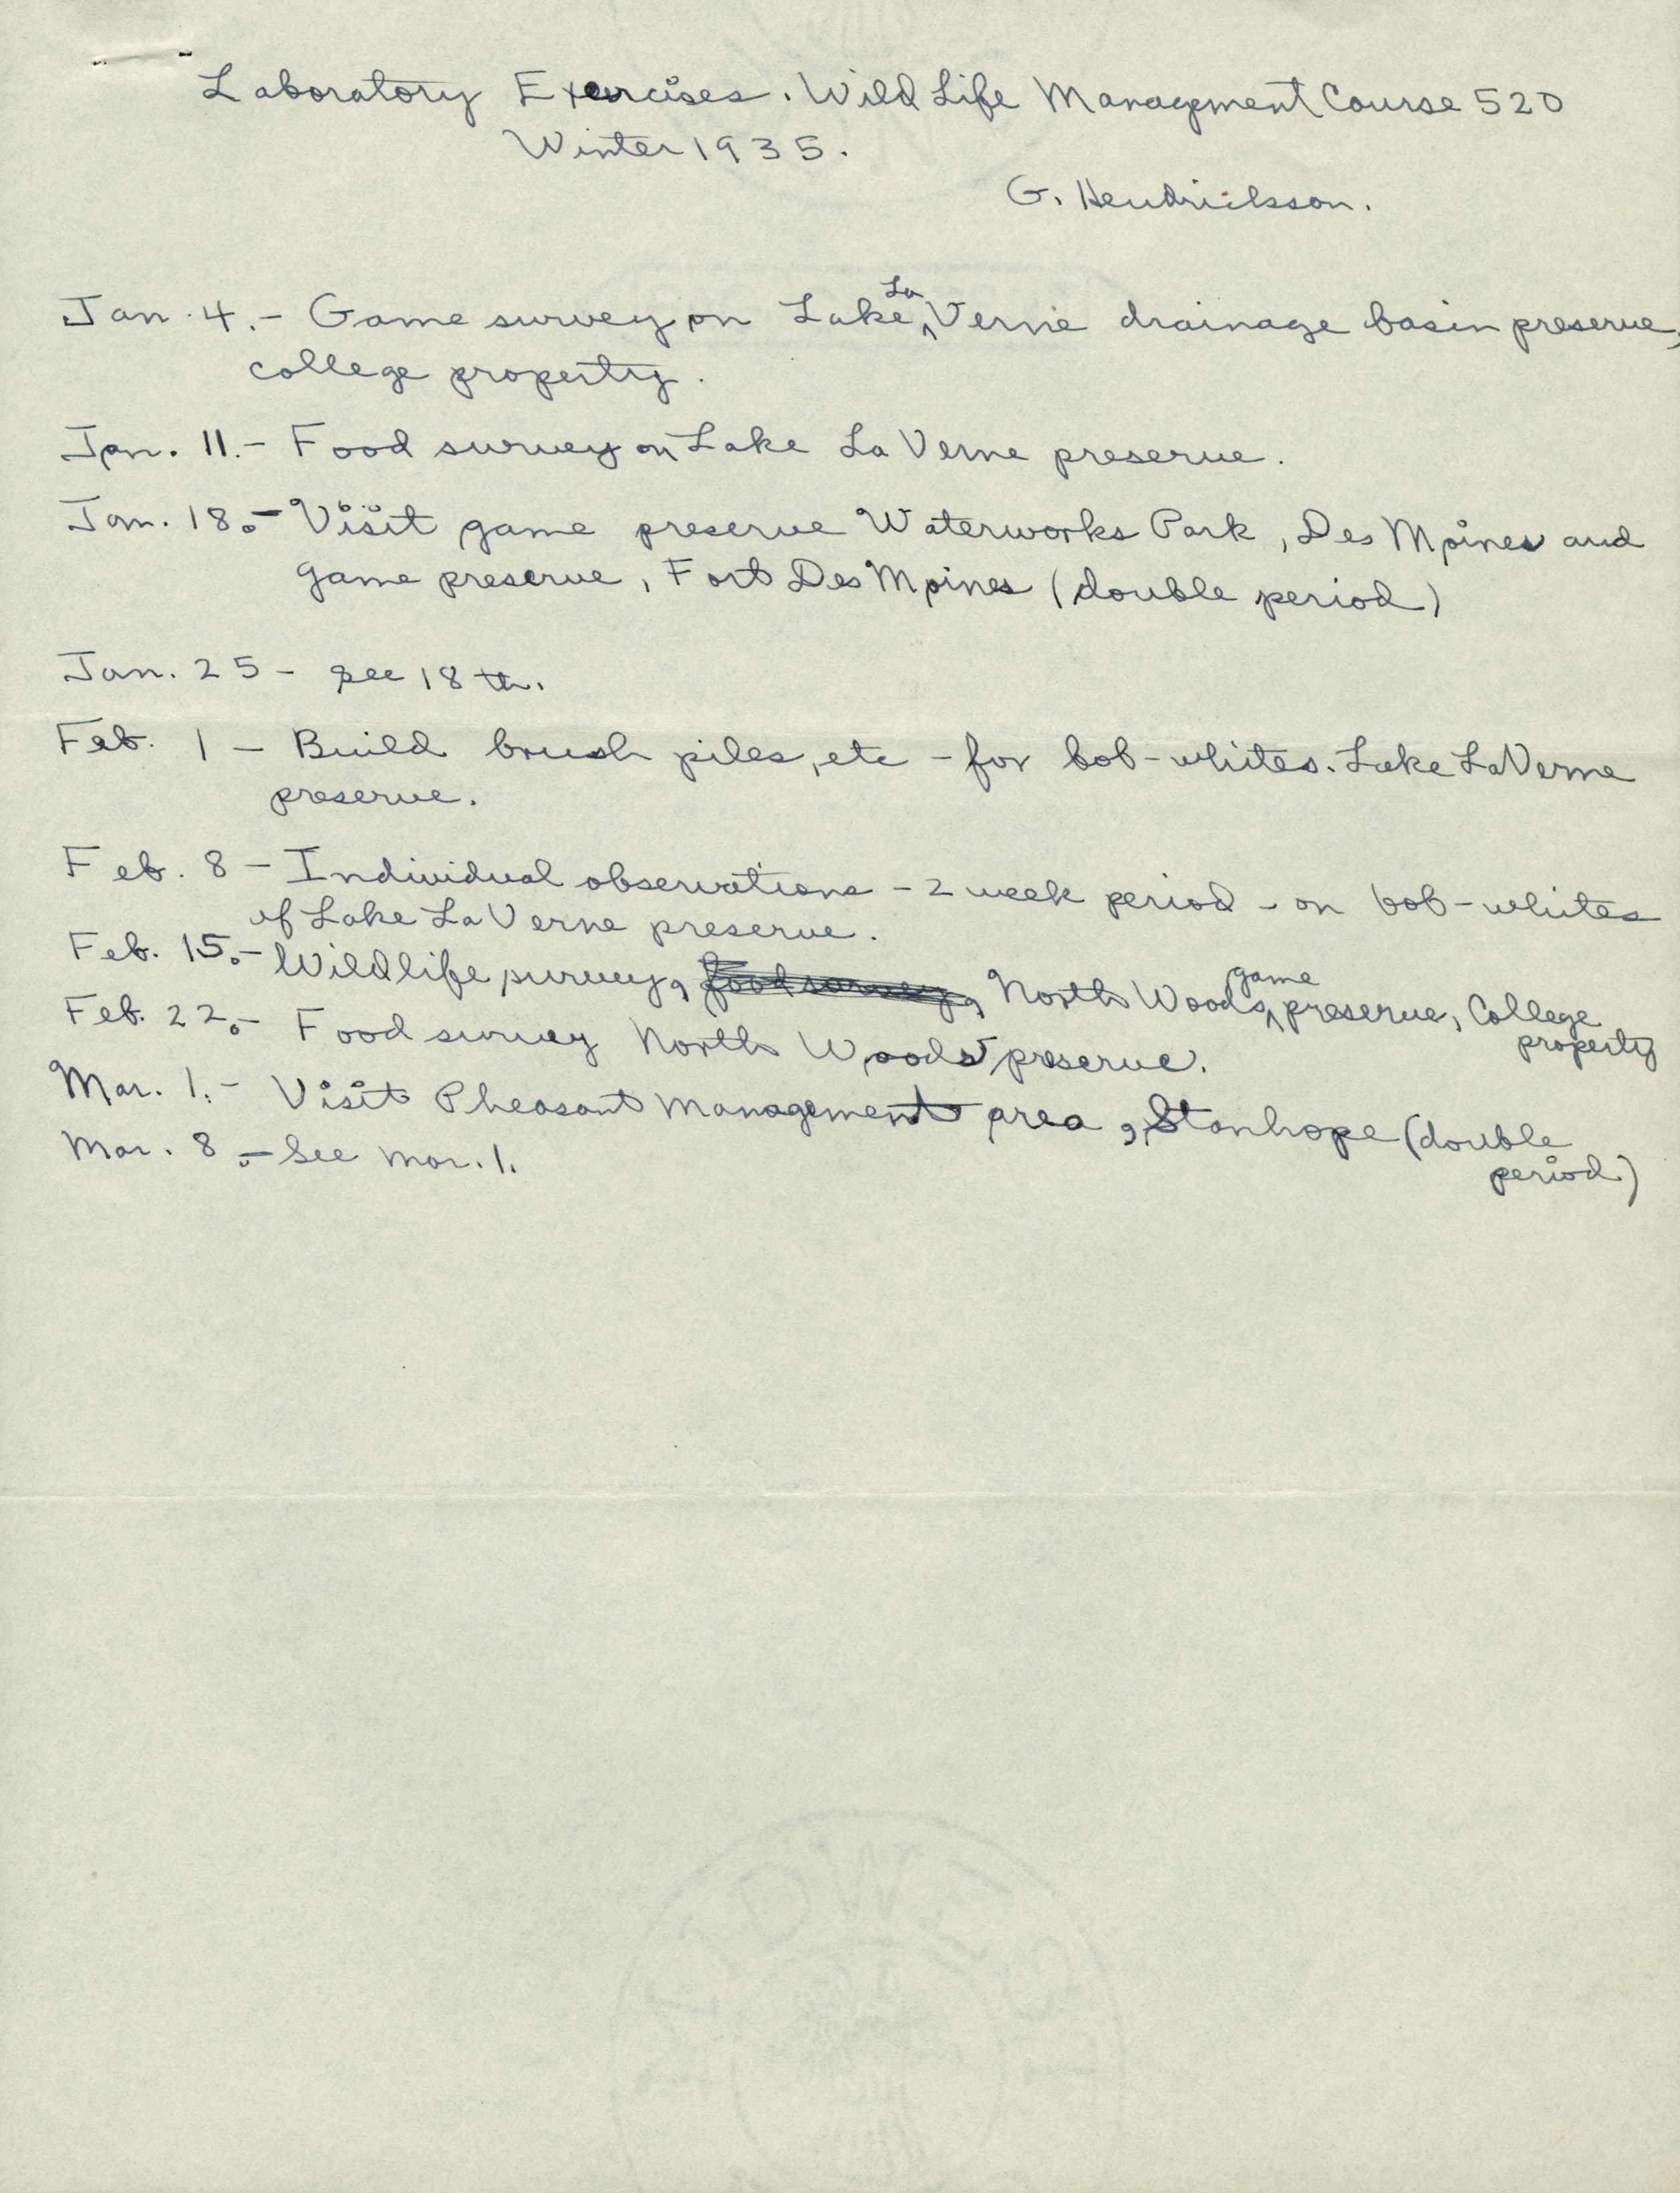 Laboratory Exercises. Wild Life Management Course 520
Winter 1935.
G. Hendrickson.
Jan. 4. - Game survey on Lake La Verne drainage basin preserve,
college property.
Jan. 11. - Food survey on Lake La Verne preserve.
Jan. 18. - Visit game preserve Waterworks Park, Des Moines and
game preserve, Fort Des Moines (double period)
Jan. 25 - see 18th.
Feb. 1 - Build brush piles, etc - for bob-whites. Lake LaVerne
preserve.
Feb. 8 - Individual observations - 2 week period - on bob-whites
of Lake LaVerne preserve.
Feb. 15. - Wildlife survey, food survey, North Woods game preserve, College
property
Feb. 22. - Food survey North Woods preserve.
Mar. 1. - Visit Pheasant Management area, Stanhope (double
period)
Mar. 8. - See Mar. 1.